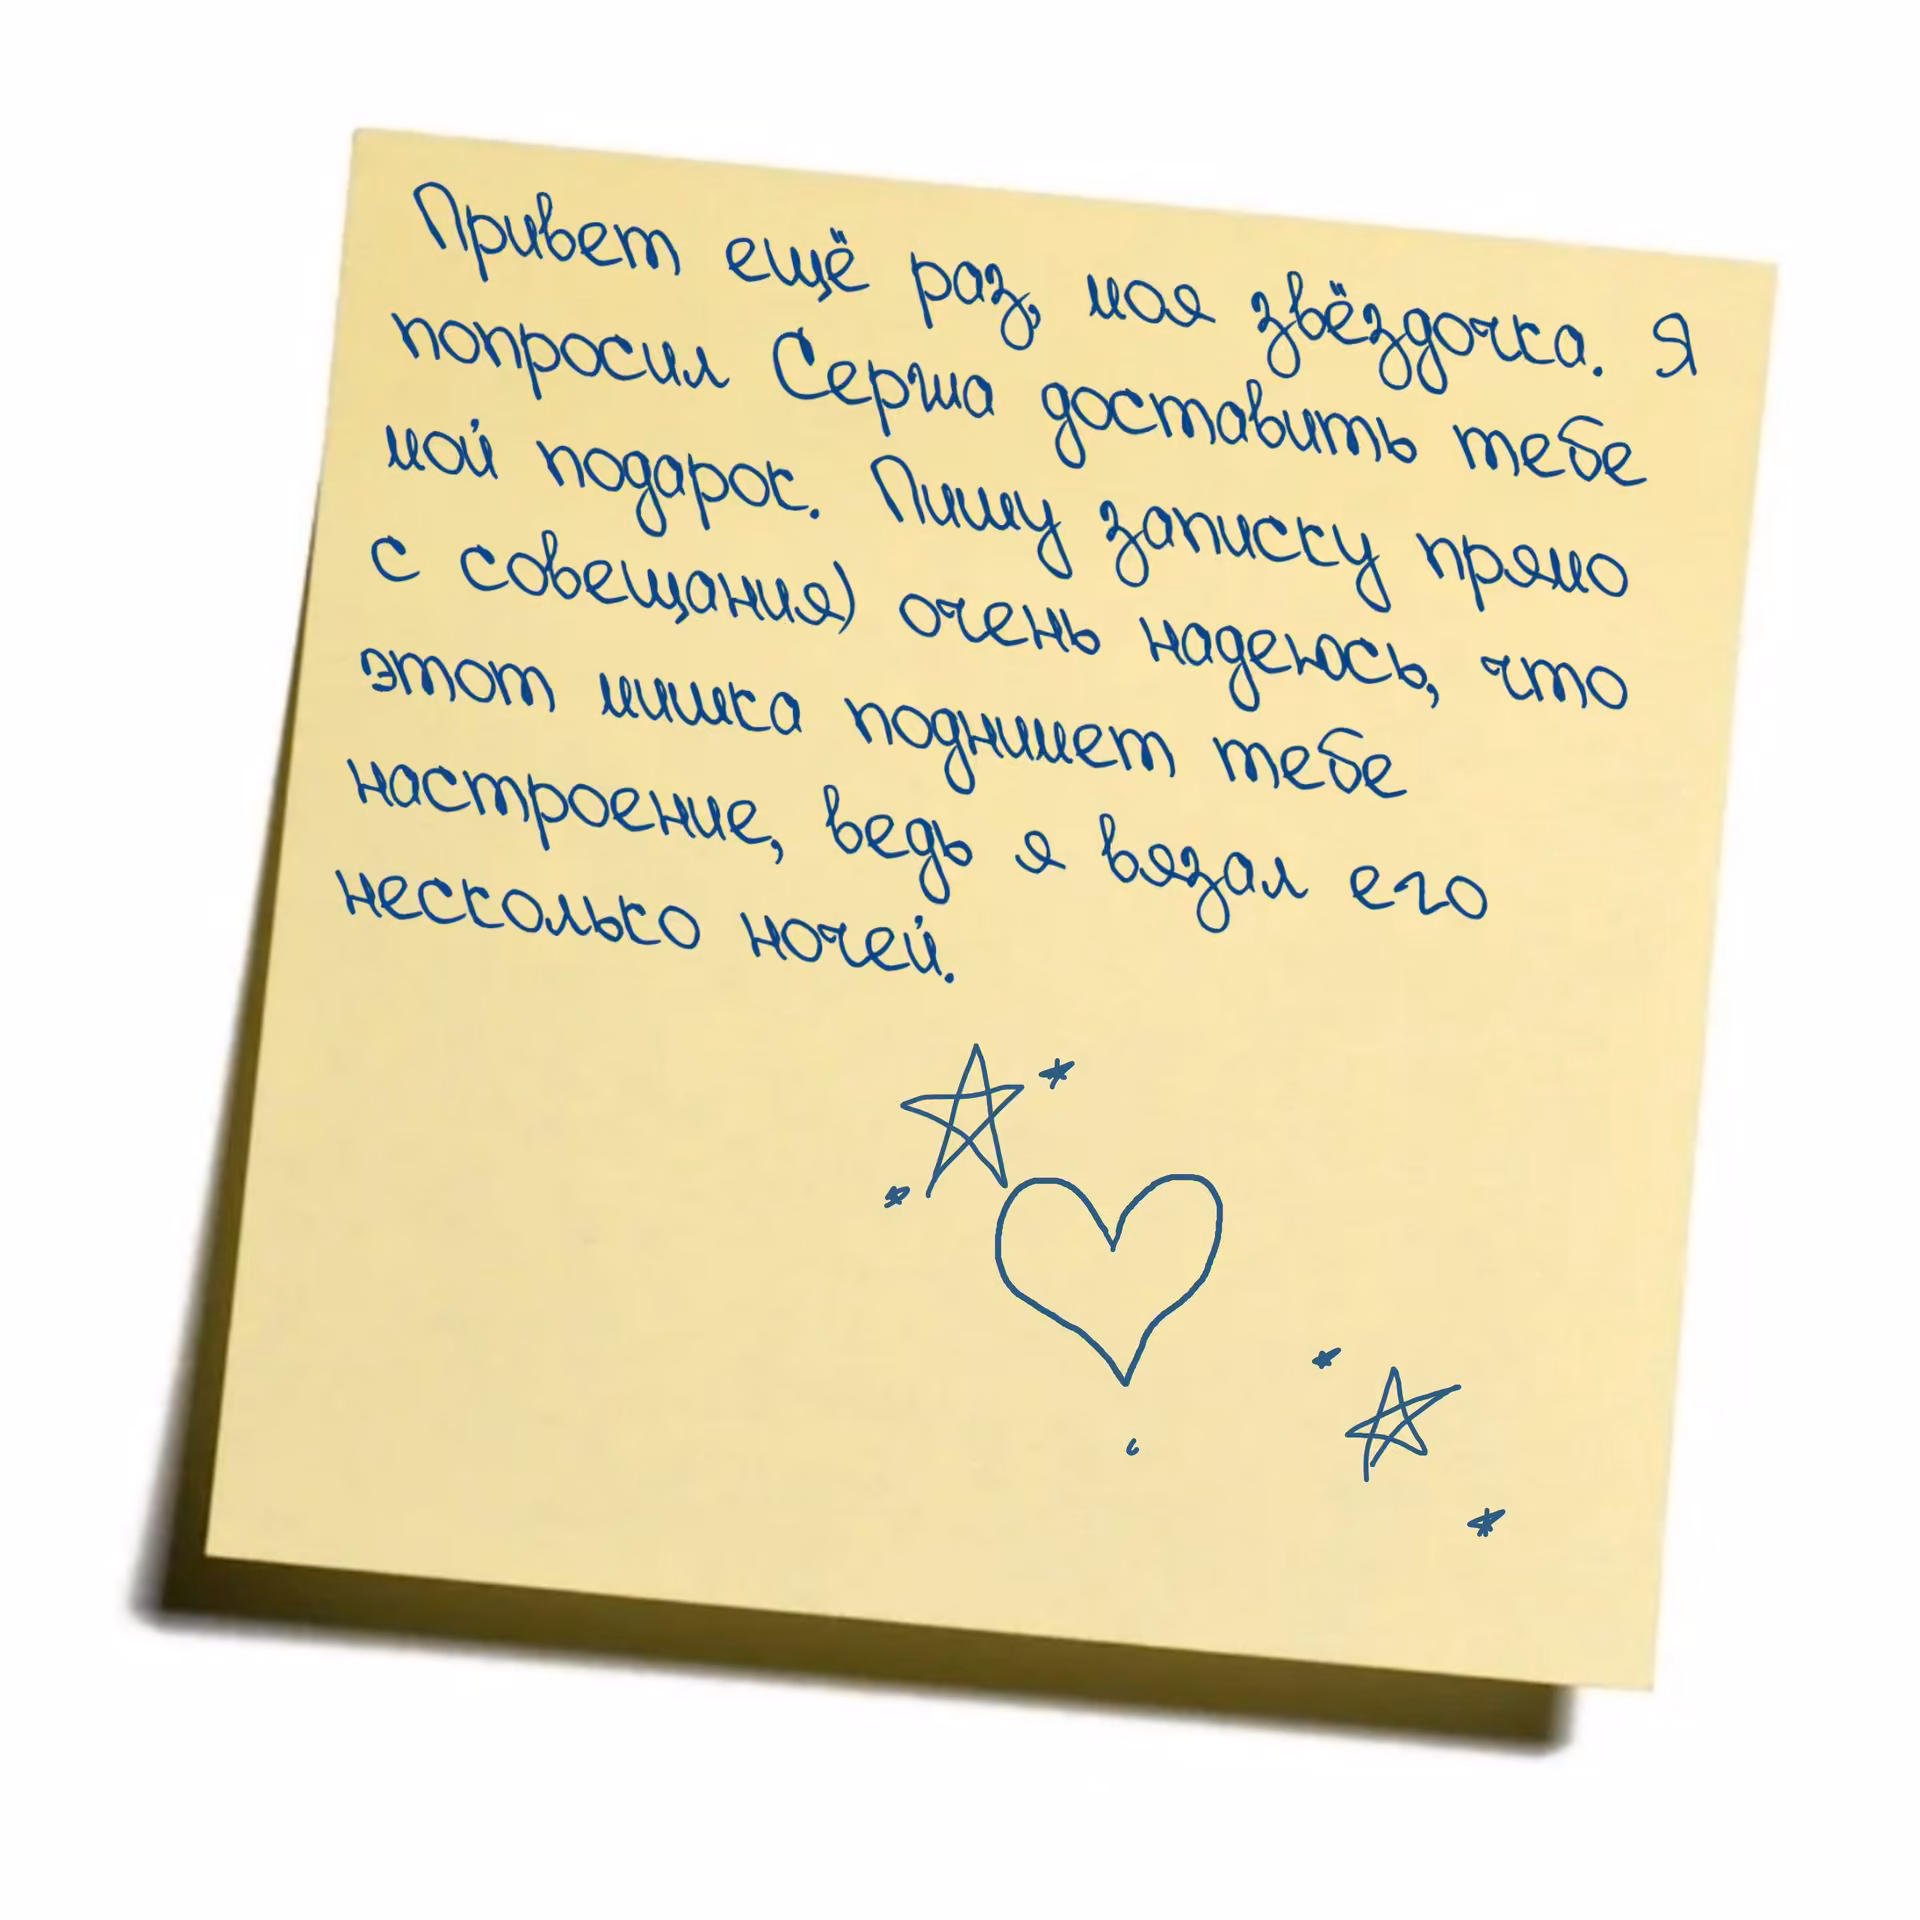 Привет ещё раз, моя звёздочка. Я
попросил Серша доставить тебе
мой подарок. Пишу записку прямо
с совещания) очень надеюсь, что
этот мишка поднимет тебе
настроение, ведь я вязал его
несколько ночей.